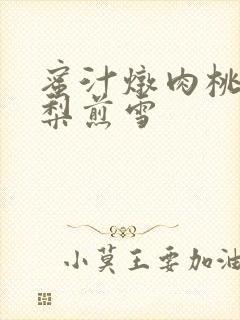 蜜汁燉肉桃
梨煎雪
小莫王要加油